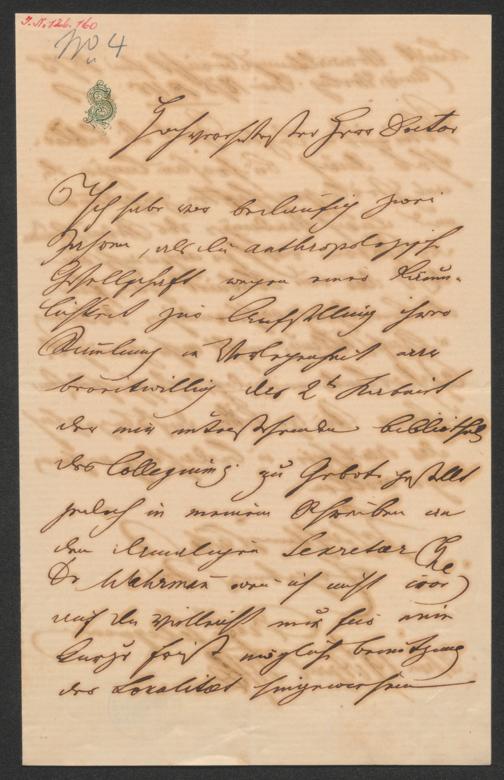 J.N. 126.160
No 4
Hochverehrtester Herr Doctor
Ich habe vor beiläufig zwei
Jahren, als die anthropologische
Gesellschaft wegen einer Räum-
lichkeit zur Aufstellung ihrer
Sammlung in Verlegenheit war
bereitwillig das 2te Kabinet
der mir unterstehenden Bibliothek
des Collegiums zu Gebote gestellt
jedoch in meinem Schreiben an
den damaligen Sekretär
Dr Wahrman ich nicht
auf die vielleicht nur für eine
kurze frist mögliche benützung
der Localität hingewiesen